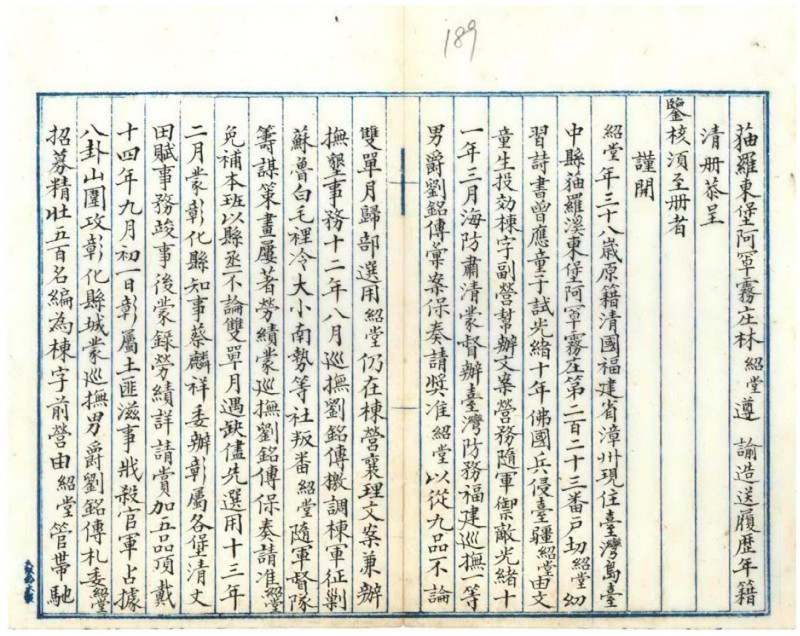 189
猫羅東堡阿罩霧庄林紹堂遵 諭造送履歷年籍
清册恭呈
鑒核須至册者
謹開
紹堂年三十八歲原籍清國福建省漳州現住臺灣島臺
中縣猫羅溪東堡阿罩霧庄第二百二十三番戶切紹堂幼
習詩書曾應童子試光緒十年佛國兵侵臺疆紹堂由文
童生投効棟字副營幫辦文案營務隨軍禦敵光緒十
一年三月海防肅清蒙督辦臺灣防務福建巡撫一等
男爵劉銘傳彙案保奏請獎准紹堂以從九品不論
雙單月歸部選用紹堂仍在棟營襄理文案兼辦
撫墾事務十二年八月巡撫劉銘傳檄調棟軍征剿
蘇魯白毛裡冷大小南勢等社叛番紹堂隨軍督隊
籌謀策畫屢著勞績蒙巡撫劉銘傳保奏請准紹堂
免補本班以縣丞不論雙單月遇缺儘先選用十三年
二月蒙彰化縣知事蔡麟祥委辦彰屬各堡清丈
田賦事務竣事後蒙錄勞績詳請賞加五品頂戴
十四年九月初一日彰屬土匪滋事戕殺官軍占據
八卦山圍攻彰化縣城蒙巡撫男爵劉銘傳札委紹堂
招募精壯五百名編為棟字前營由紹堂管帶馳